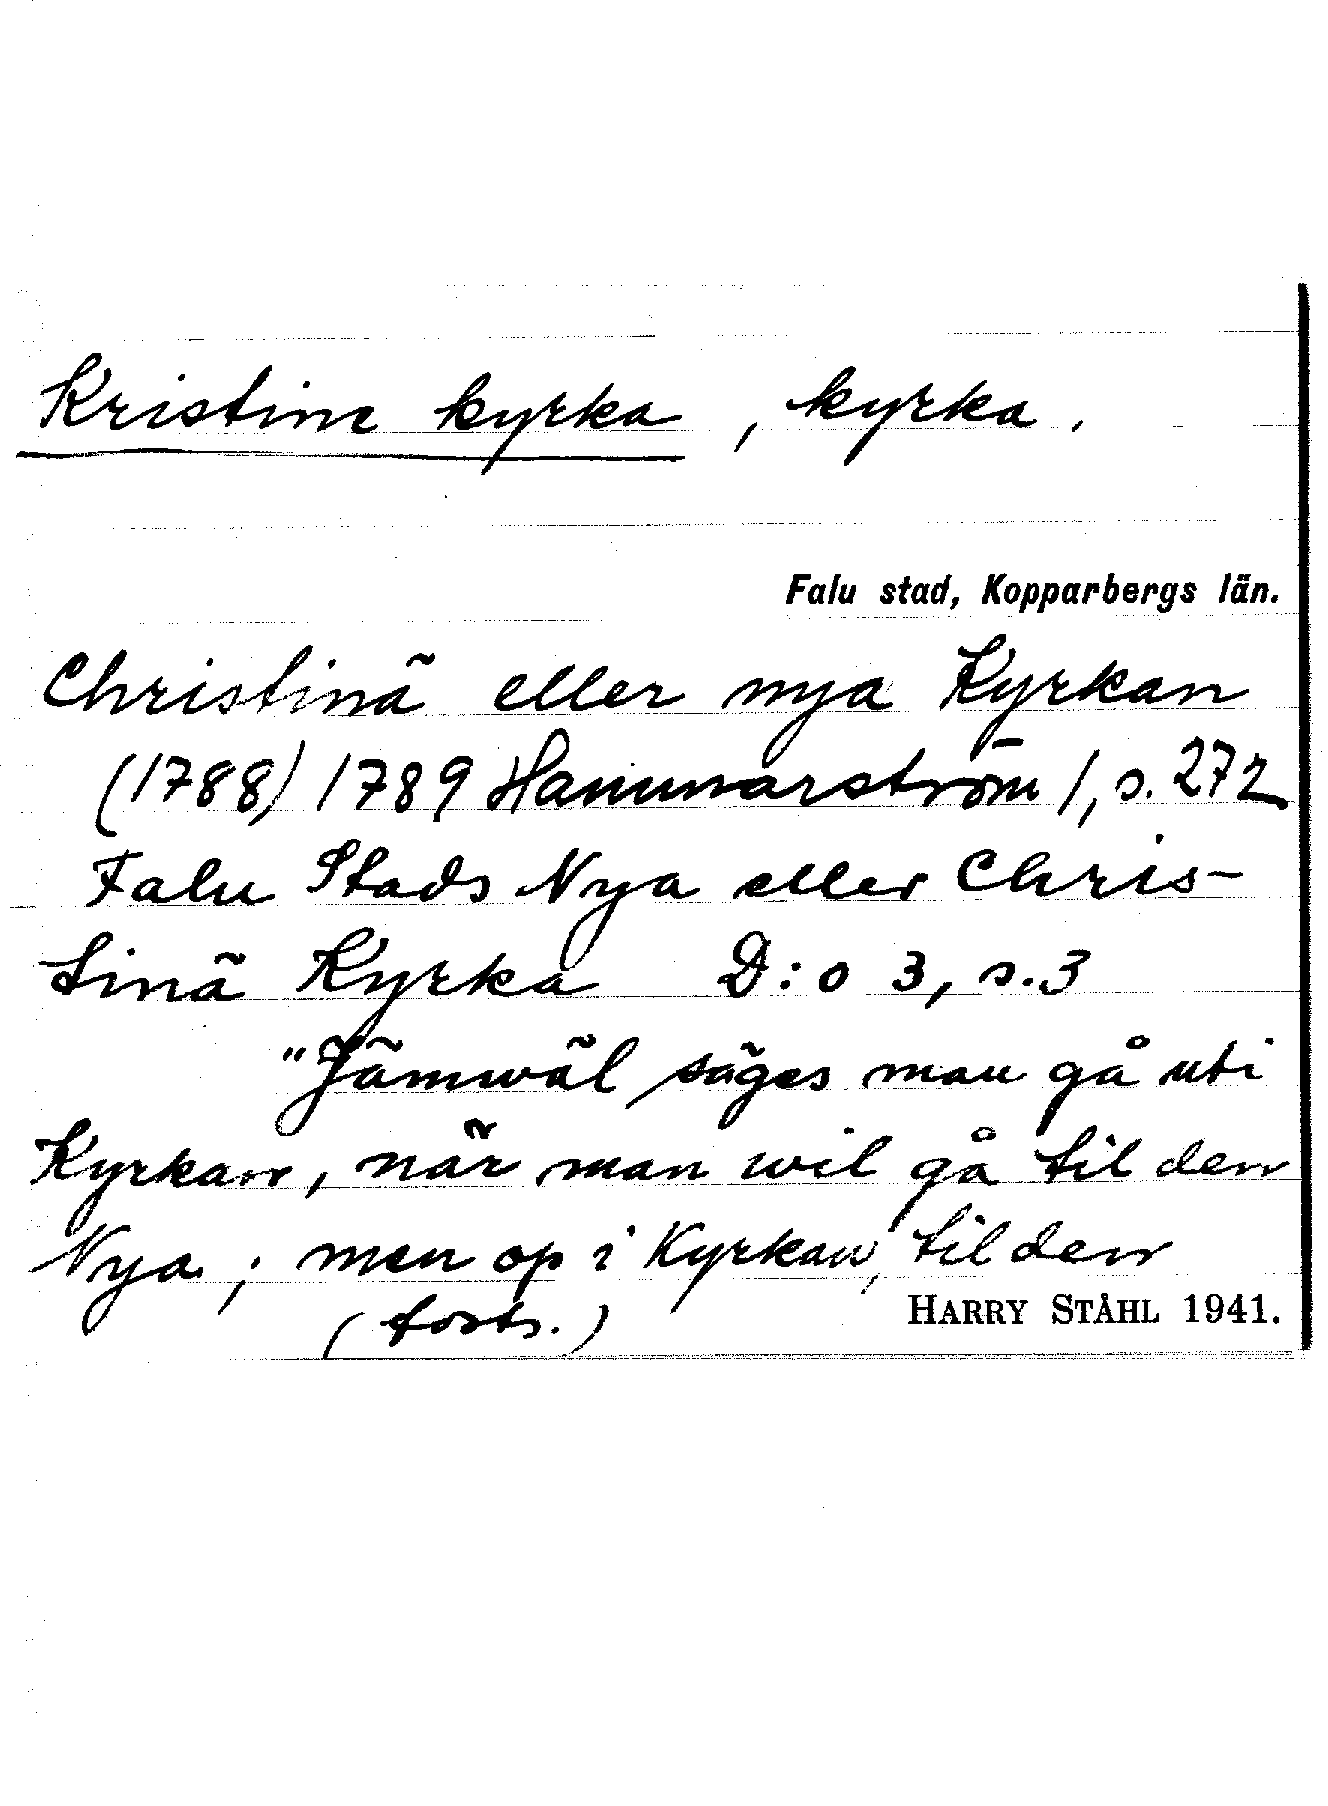 Kristine kyrka, kyrka.
Falu stad, Kopparbergs län.
Christinä eller nya Kyrkan
(1788) 1789 Hammarström 1, s. 272
Falu Stads Nya eller Chris-
tinä Kyrka D:o 3, s. 3
"Jämwäl säges man gå uti
Kyrkan, när man wil gå til den
Nya; men op i Kyrkan, til den
(forts.)
HARRY STÅHL 1941.